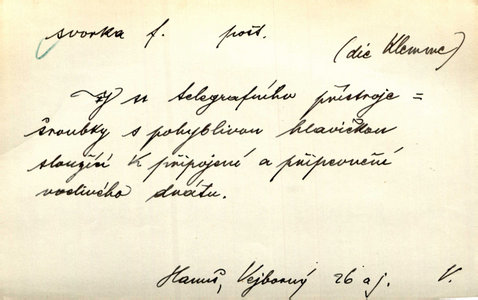 svorka f. pošt.
(die Klemme)
U n telegrafního přístroje =
šroubky s pohyblivou hlavičkou
sloužící k připojení a připevnění
vodivého drátu.
Hanuš, Vejborný 26 aj. V.